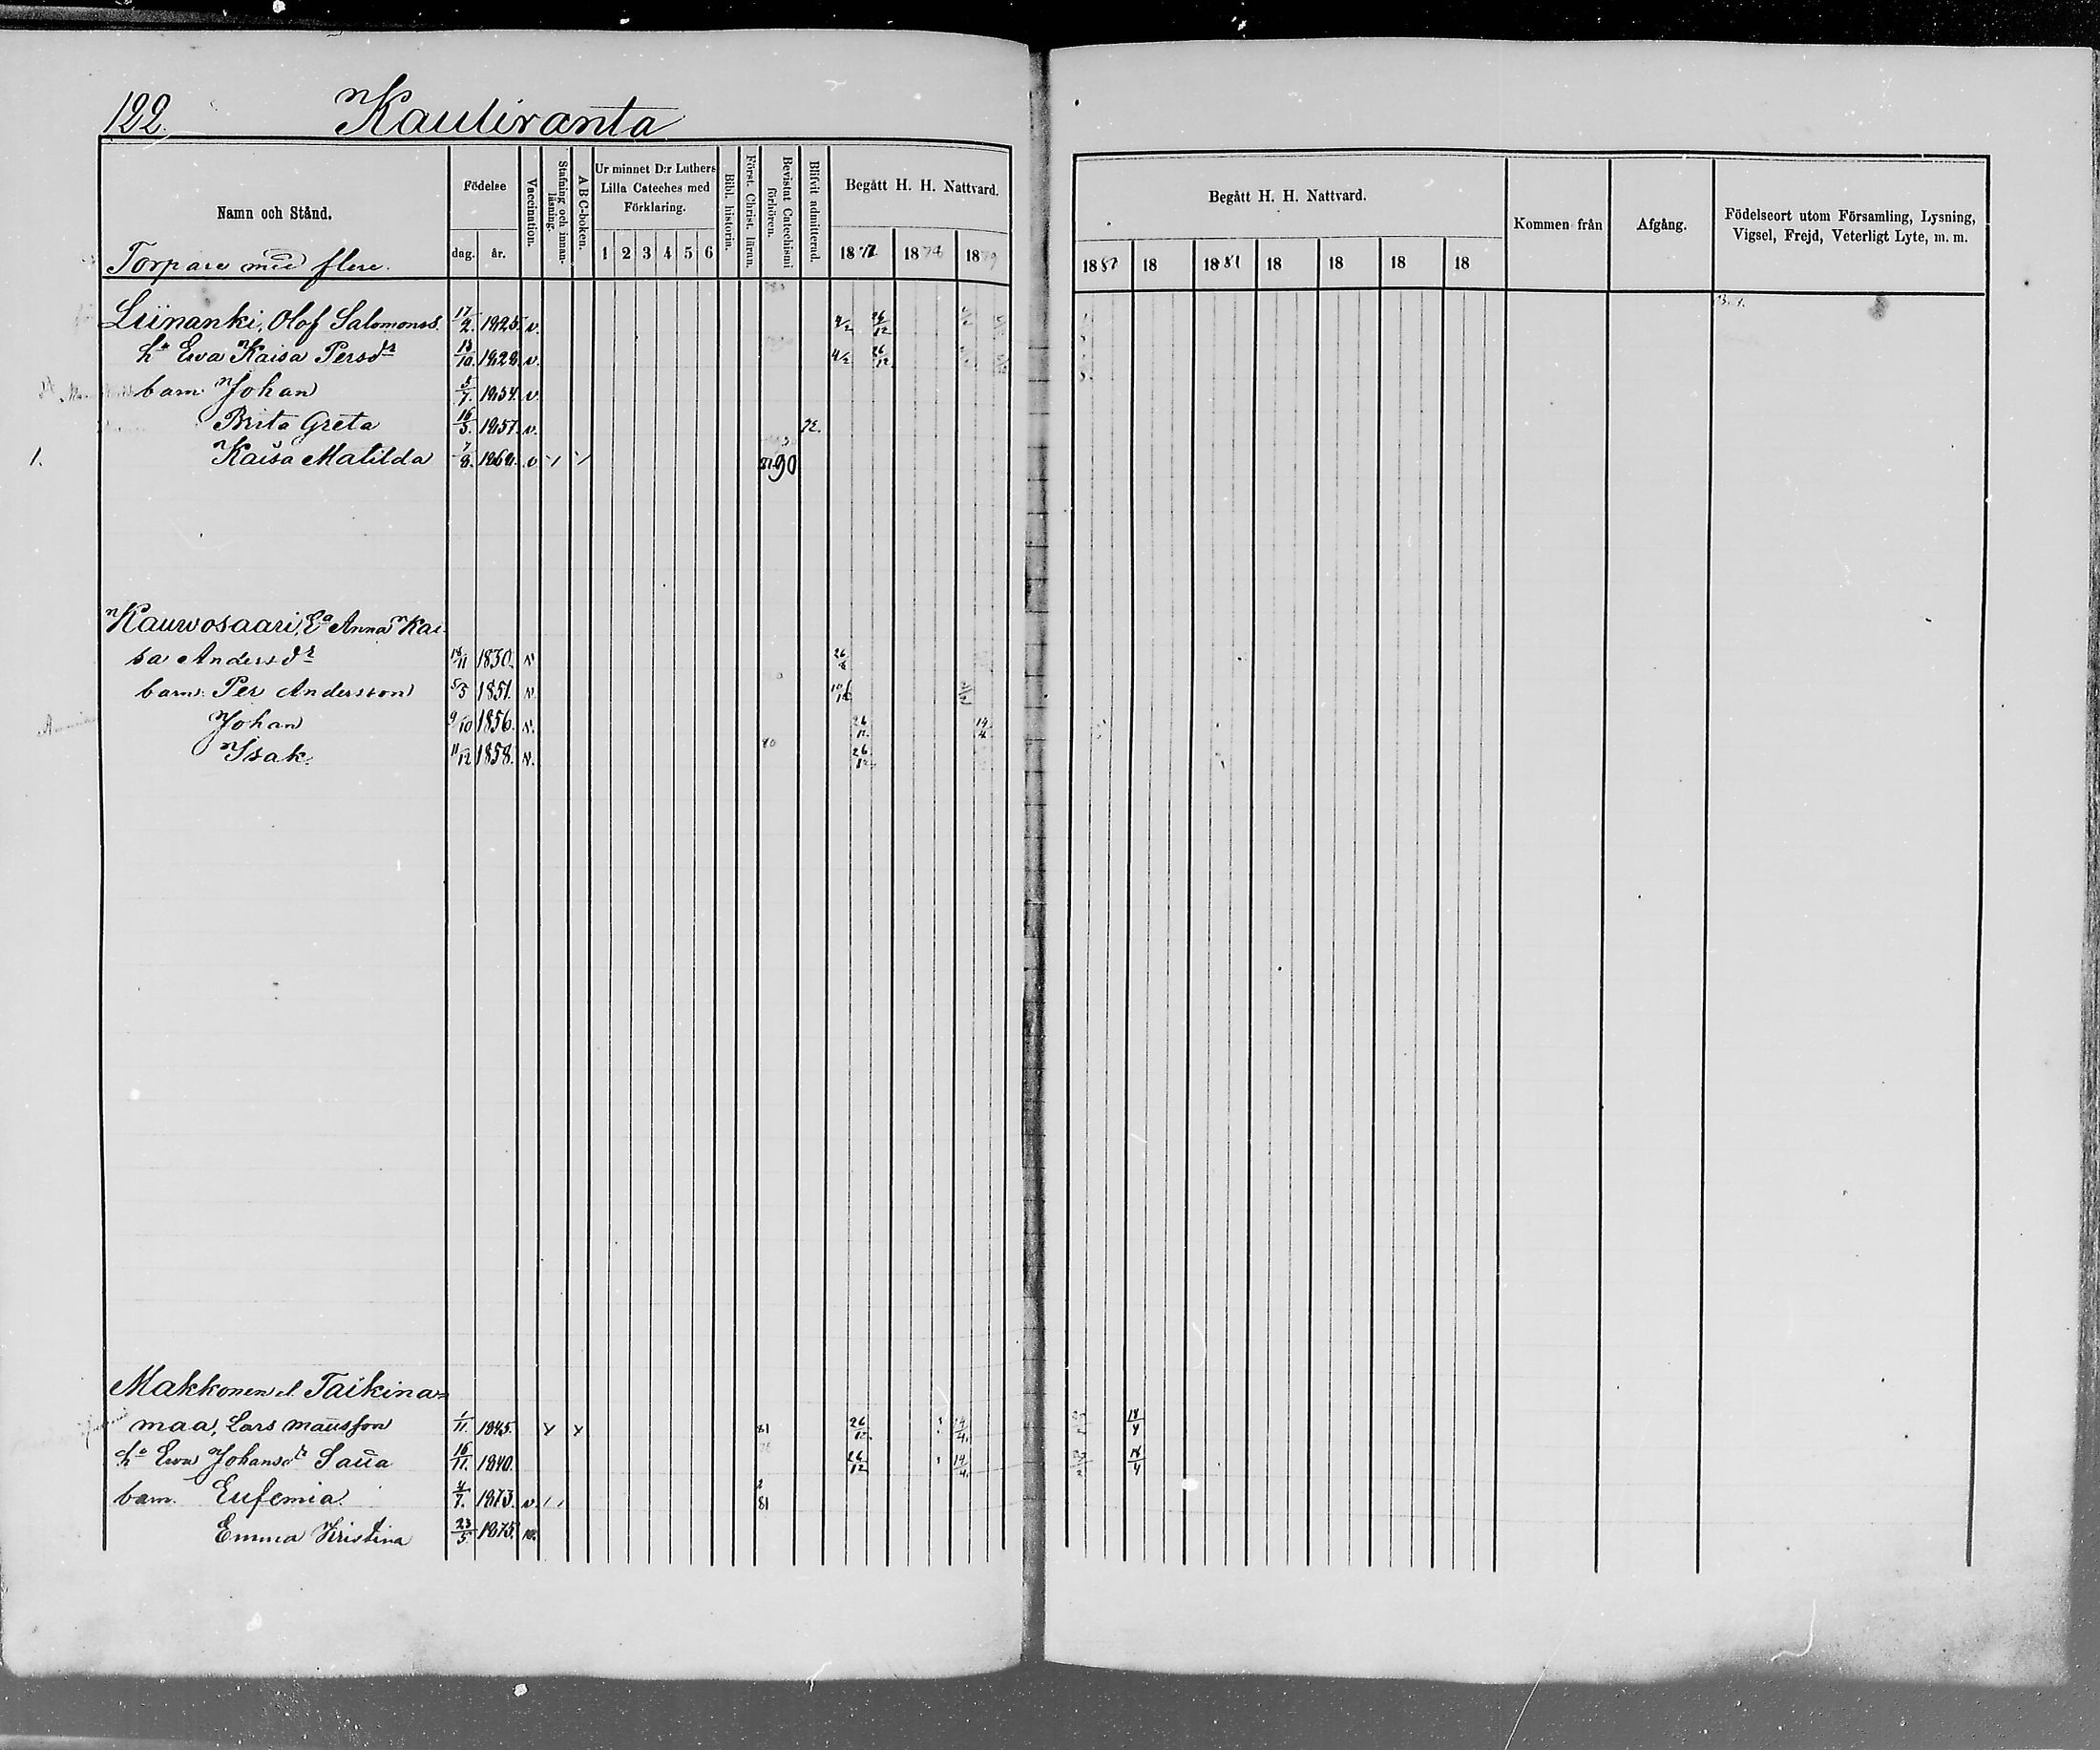 122.
Kauliranta
Namn och Stånd.
Födelse
dag. år.
Vaccination.
Stafning och innanläsning.
A B C-boken.
Ur minnet D:r Luthers Lilla Cateches med Förklaring.
1 2 3 4 5 6
Bibl. historia.
Först. Christ. läran.
Bevistat Catechismi förhören.
Blifvit admitterad.
Begått H. H. Nattvard.
1877 1878 1879
Torpare med flere.
Begått H. H. Nattvard.
18 18 1881 18 18 18 18
Kommen från
Afgång.
Födelseort utom Församling, Lysning, Vigsel, Frejd, Veterligt Lyte, m. m.
Liinanki, Olof Salomonss. 17/2. 1825. v. 4/2 26/12
h:a Ewa Kaisa Persdr 13/10. 1828. v. 4/2 26/12
barn Johan 5/7. 1854. v.
Brita Greta 16/5. 1857. v.
1. Kaisa Matilda 7/8. 1868. v 90
Kauwosaari, Ea Anna Kai
sa Andersdr 18/11 1830. v 26
barn: Per Andersson 5/5 1851. v.
Johan 9/10 1856. v. 26/12 14/4
Isak. 11/12 1858. v. 80 26/12
Makkonen el. Taikina=
maa, Lars Mausson 1/11. 1845. 81 26/12 14/4. 18/4
h:a Ewa Johansdr Saua 16/11. 1840. 26/12 14/4. 18/4
barn. Eufemia. 4/7. 1873. v. 81
Emma Kristina 23/5. 1875.